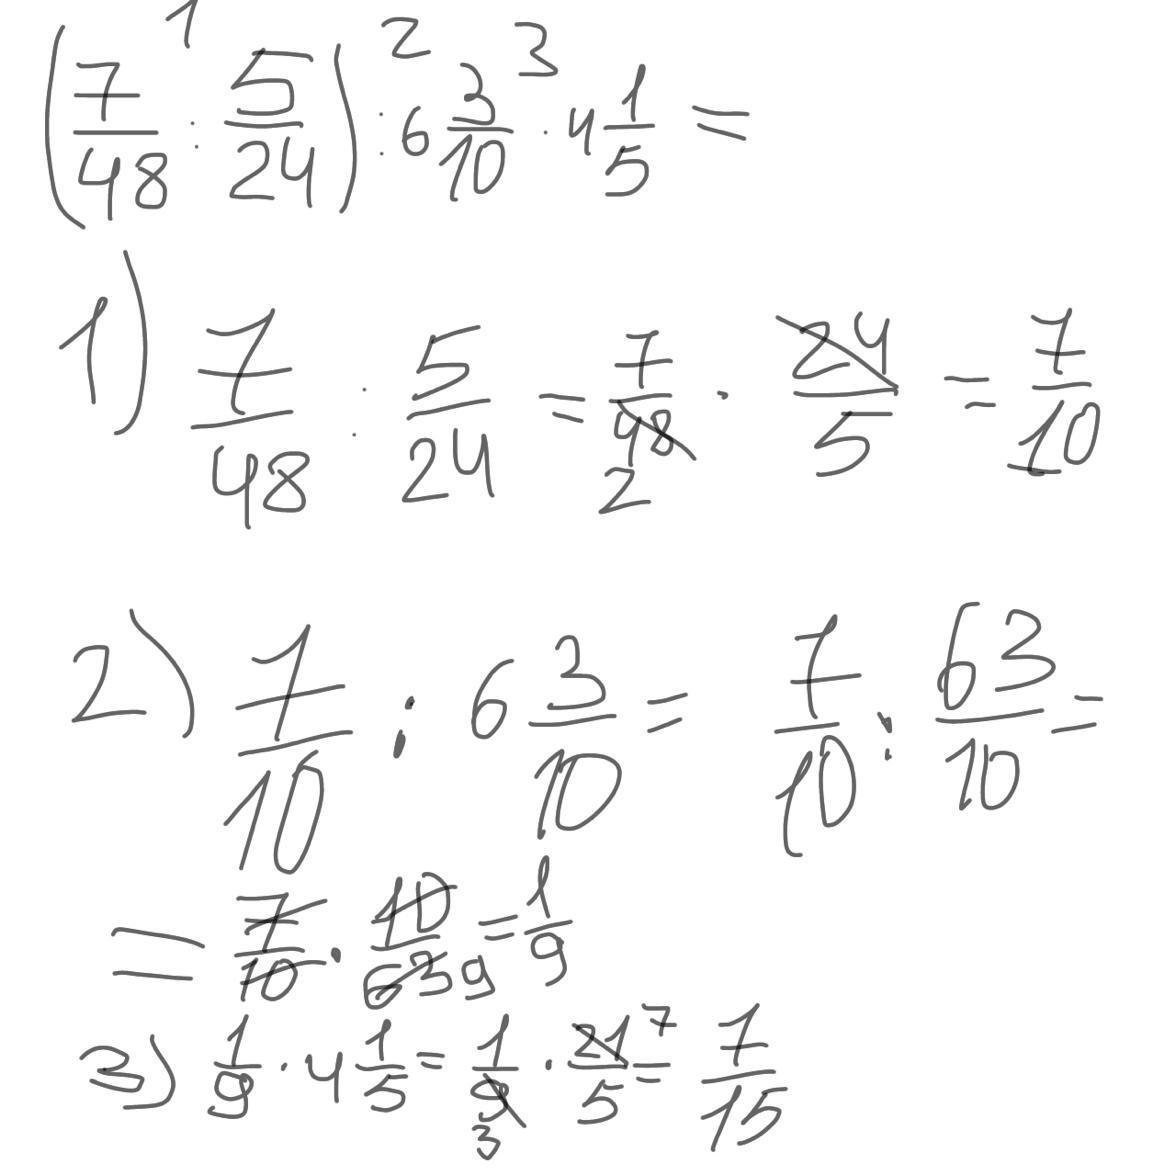 (7/48 : 5/24) : 6 3/10 · 4 1/5 =
1 2 3
1) 7/48 : 5/24 = 7/48 · 24/5 = 7/10
2
2) 7/10 : 6 3/10 = 7/10 : 63/10 =
= 7/10 · 10/63 9 = 1/9
3) 1/9 · 4 1/5 = 1/9 · 21/5 7 = 7/15
3